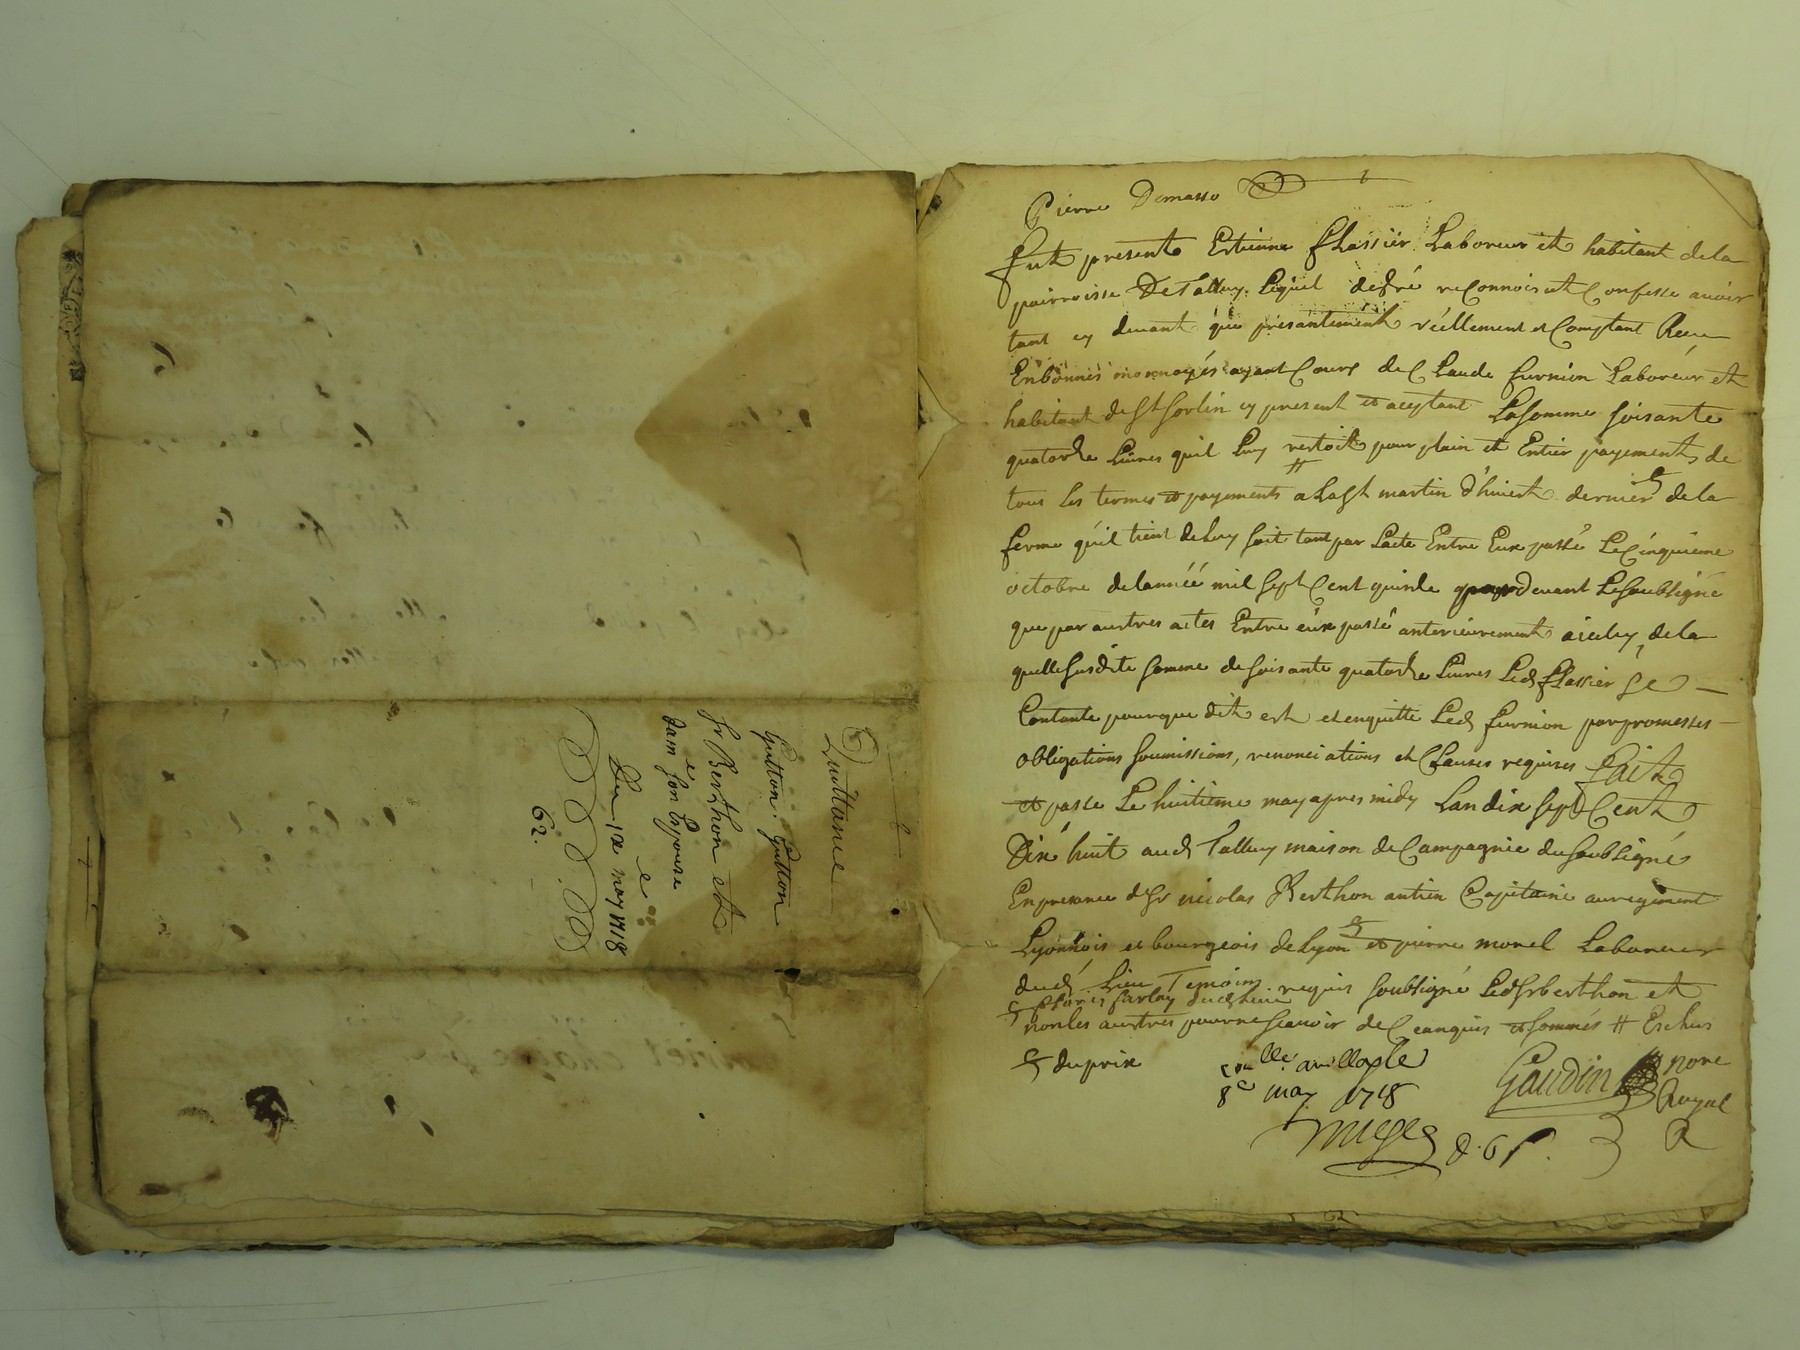 Quittance
Gutton. Gutton
Sr Berthon et
dame son Espouse
Du 1xe may 1718
62.
Pierre Demasso
fut present Estienne flassier Laboreur et habitant dela
pairroisse DeTalluy. Lequel degré reConnoist et Confesse avoir
tant cy devant que presantement réellement et Comptant Receu
Enbonnes monnoyés ayant Cours de Claude furnion Laboréur et
habitant de St Sorlin cy present et aceptant LaSomme soisante
quatorze Livres quil Luy restoit pour plain et Entier payement de
tous les termes et payements # alaSt martin d'hivert dernier dela
ferme quil tient deLuy soit tant par Lacte Entre Eux passé LeCinquieme
octobre delannéé mil sept Cent quinze pardevant LeSoubsigné
que par austres actes Entre eux passé anterieurement aiceluy, dela
quelle susdite somme de soisante quatorze Livres Led flassier se
Contante pourque dit est et enquitte Led furnion par promesses
obligations soumissions, renonciations et Clauses requises fait
et passé Le huitieme may apres midy Lan dix sept Cent
Dix huit aud Talluy maison deCampagnie du Soubsigné
Enpresence de Sr nicolas Berthon antien Capitaine au regiment
Lyonnois et bourgeois deLyon et pierre morel Laboreur
dud Lieu Temoins requis soubsigné Led Sr berthon et
non les austres pour ne sçavoir de Ce enquis et sommés # Eschus
du prix
8e may 1718
Gaudin
nore
Royal
R